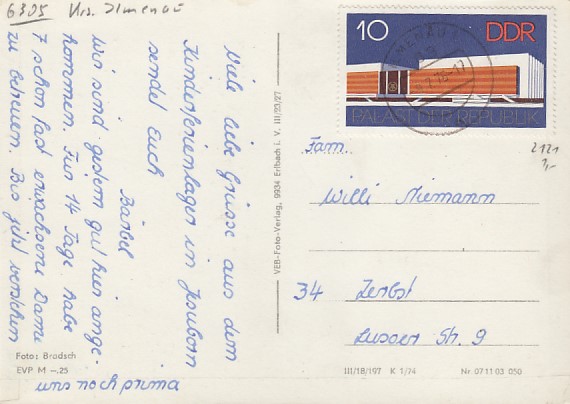 6305 Krs. Ilmenau
Viele liebe Grüsse aus dem
Kinderferienlager in Jesuborn
sendet Euch
Bärbel
Wir sind gestern gut hier ange-
kommen. Für 14 Tage habe
7 schon fast erwachsene Dame
zu betreuen. Bis jetzt verstehen
uns noch prima
Foto: Brodsch
EVP M –,25
VEB-Foto-Verlag, 9934 Erlbach i. V. III/23/27
10 DDR
PALAST DER REPUBLIK
2121
Fam.
Willi Niemann
34 Zerbst
Lusoer Str. 9
III/18/197 K 1/74 Nr. 07 11 03 050